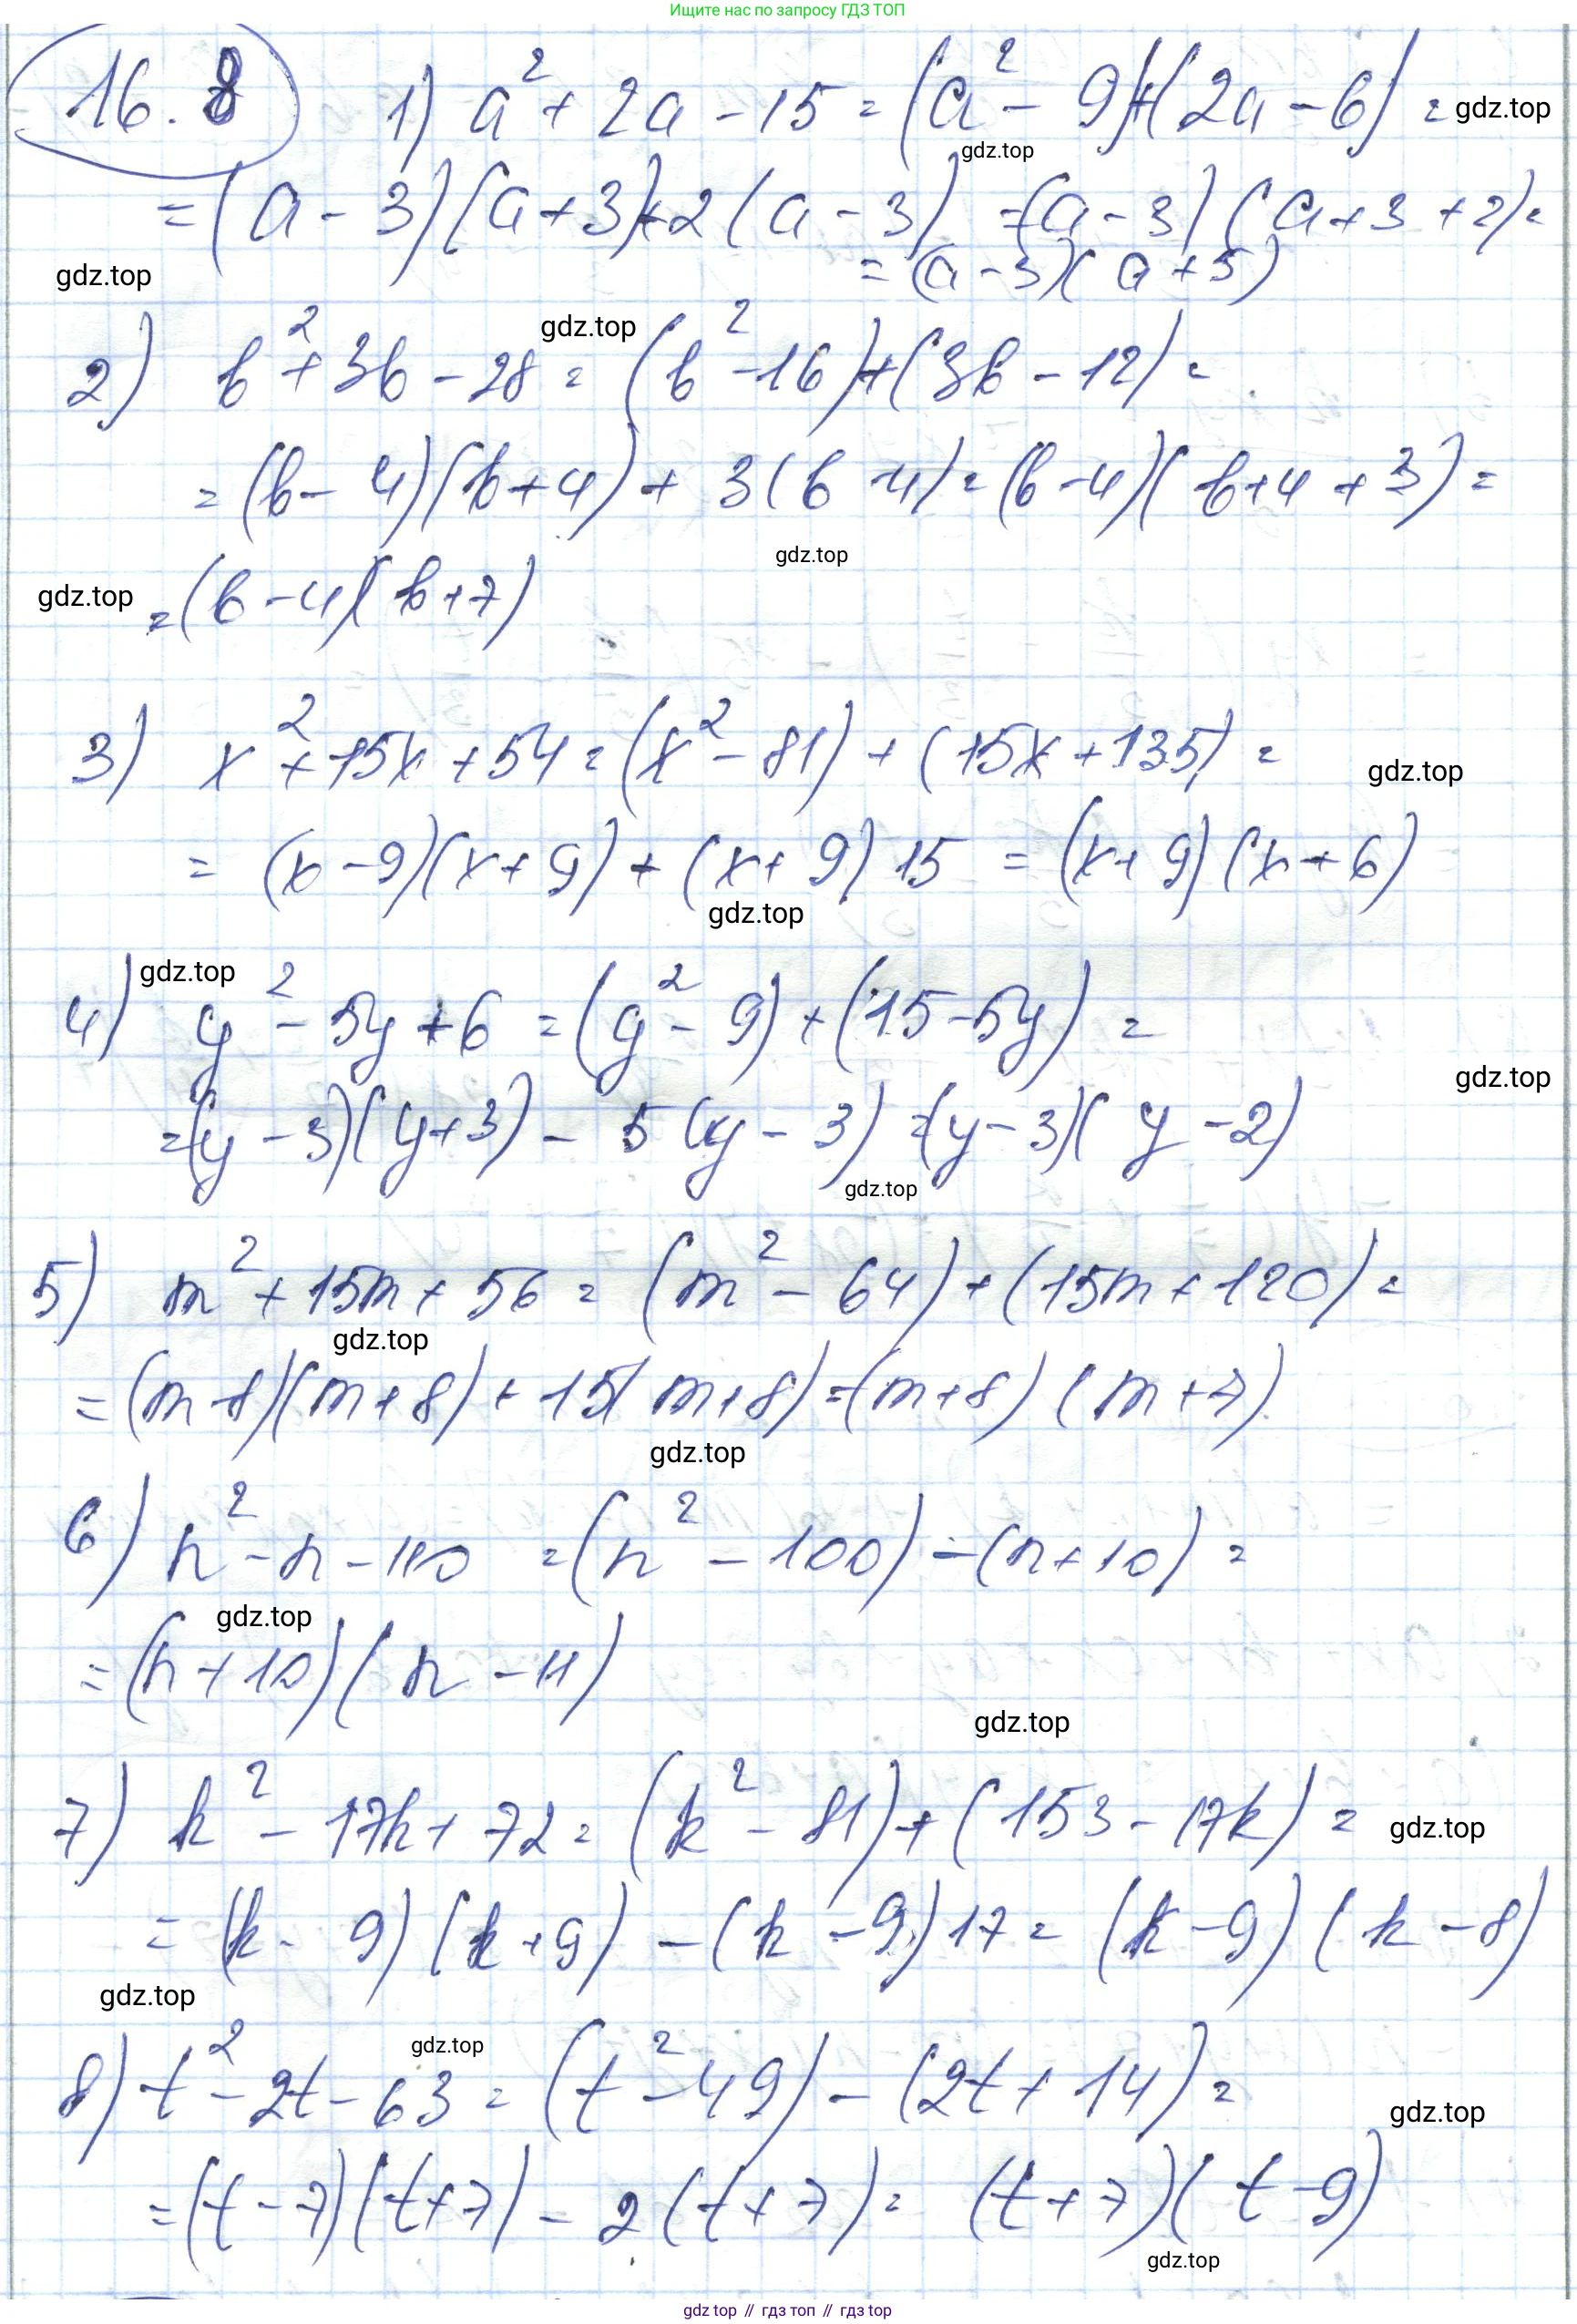 Ищите нас по запросу ГДЗ ТОП
16.8 1) a² + 2a - 15 = (a² - 9) + (2a - 6) = gdz.top
gdz.top
= (a - 3)(a + 3) + 2(a - 3) = (a - 3)(a + 3 + 2) =
gdz.top = (a - 3)(a + 5)
gdz.top
2) b² + 3b - 28 = (b² - 16) + (3b - 12) =
= (b - 4)(b + 4) + 3(b 4) = (b - 4)(b + 4 + 3) =
gdz.top
gdz.top = (b - 4)(b + 7)
3) x² + 15x + 54 = (x² - 81) + (15x + 135) =
gdz.top
= (x - 9)(x + 9) + (x + 9) 15 = (x + 9)(x + 6)
gdz.top
gdz.top
4) y² - 5y + 6 = (y² - 9) + (15 - 5y) =
gdz.top
= (y - 3)(y + 3) - 5(y - 3) = (y - 3)(y - 2)
gdz.top
5) m² + 15m + 56 = (m² - 64) + (15m + 120) =
gdz.top
= (m - 8)(m + 8) + 15(m + 8) = (m + 8)(m + 7)
gdz.top
6) n² - n - 110 = (n² - 100) - (n + 10) =
gdz.top
= (n + 10)(n - 11)
gdz.top
7) k² - 17k + 72 = (k² - 81) + (153 - 17k) = gdz.top
= (k - 9)(k + 9) - (k - 9) 17 = (k - 9)(k - 8)
gdz.top
gdz.top
8) t² - 2t - 63 = (t² - 49) - (2t + 14) =
gdz.top
= (t - 7)(t + 7) - 2(t + 7) = (t + 7)(t - 9)
gdz.top
gdz top // гдз топ // гдз top